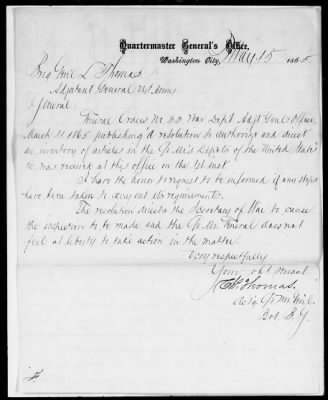 Quartermaster General's Office,
Washington City, May 15 1865.
Brig Genl L. Thomas,
Adjutant General U.S. Army
General:
General Orders No. War Dept Adjt Genl Office,
March 1865 publishing a resolution to authorize and direct
an inventory of articles in the Qr. Mrs Depots of the United States
&c. was received at this office on the inst.
I have the honor to request to be informed if any steps
have been taken to carry out its requirements.
The resolution directs the Secretary of War to cause
the inspection to be made, and the Qr. Mr. General does not
feel at liberty to take action in the matter.
Very respectfully
Your obt. servant
Chs Thomas.
Actg Qr. Mr. Genl.
Bvt. B. G.